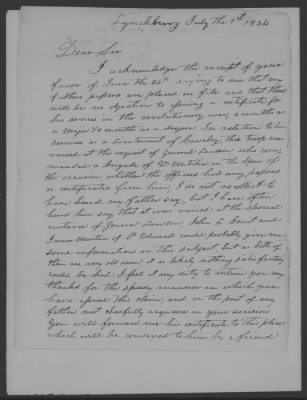 Lynchburg July the 1st 1834
Dear Sir
I acknowledge the receipt of yours
favor of June the 26th saying to me that my
fathers papers are placed on file and that there
will be no objection to issuing a certificate for
his services in the revolutionary war, 6 months as
a Major & 6 months as a dragoon. In relation to his
services as a Lieutenant of Cavalry, that troop was
raised at the request of General Lawson who com
manded a brigade of Va Militia in the Spur of
the occasion, whether the officers had any papers
or certificates from him, I do not recollect to
have heard my father say, but I have often
heard him say that it was raised at the special
instance of General Lawson. John L. Crut and
James Morton of P. Edward could probably give me
some information on this subject, but as both of
them are very old men it is likely nothing satisfactory
could be had. I feel it my duty to return you my
thanks for the speedy manner in which you
have issued this claim, and on the part of my
father most cheerfully acquiesce in your decision
You will forward me his certificate to this place
which will be conveyed to him by a friend